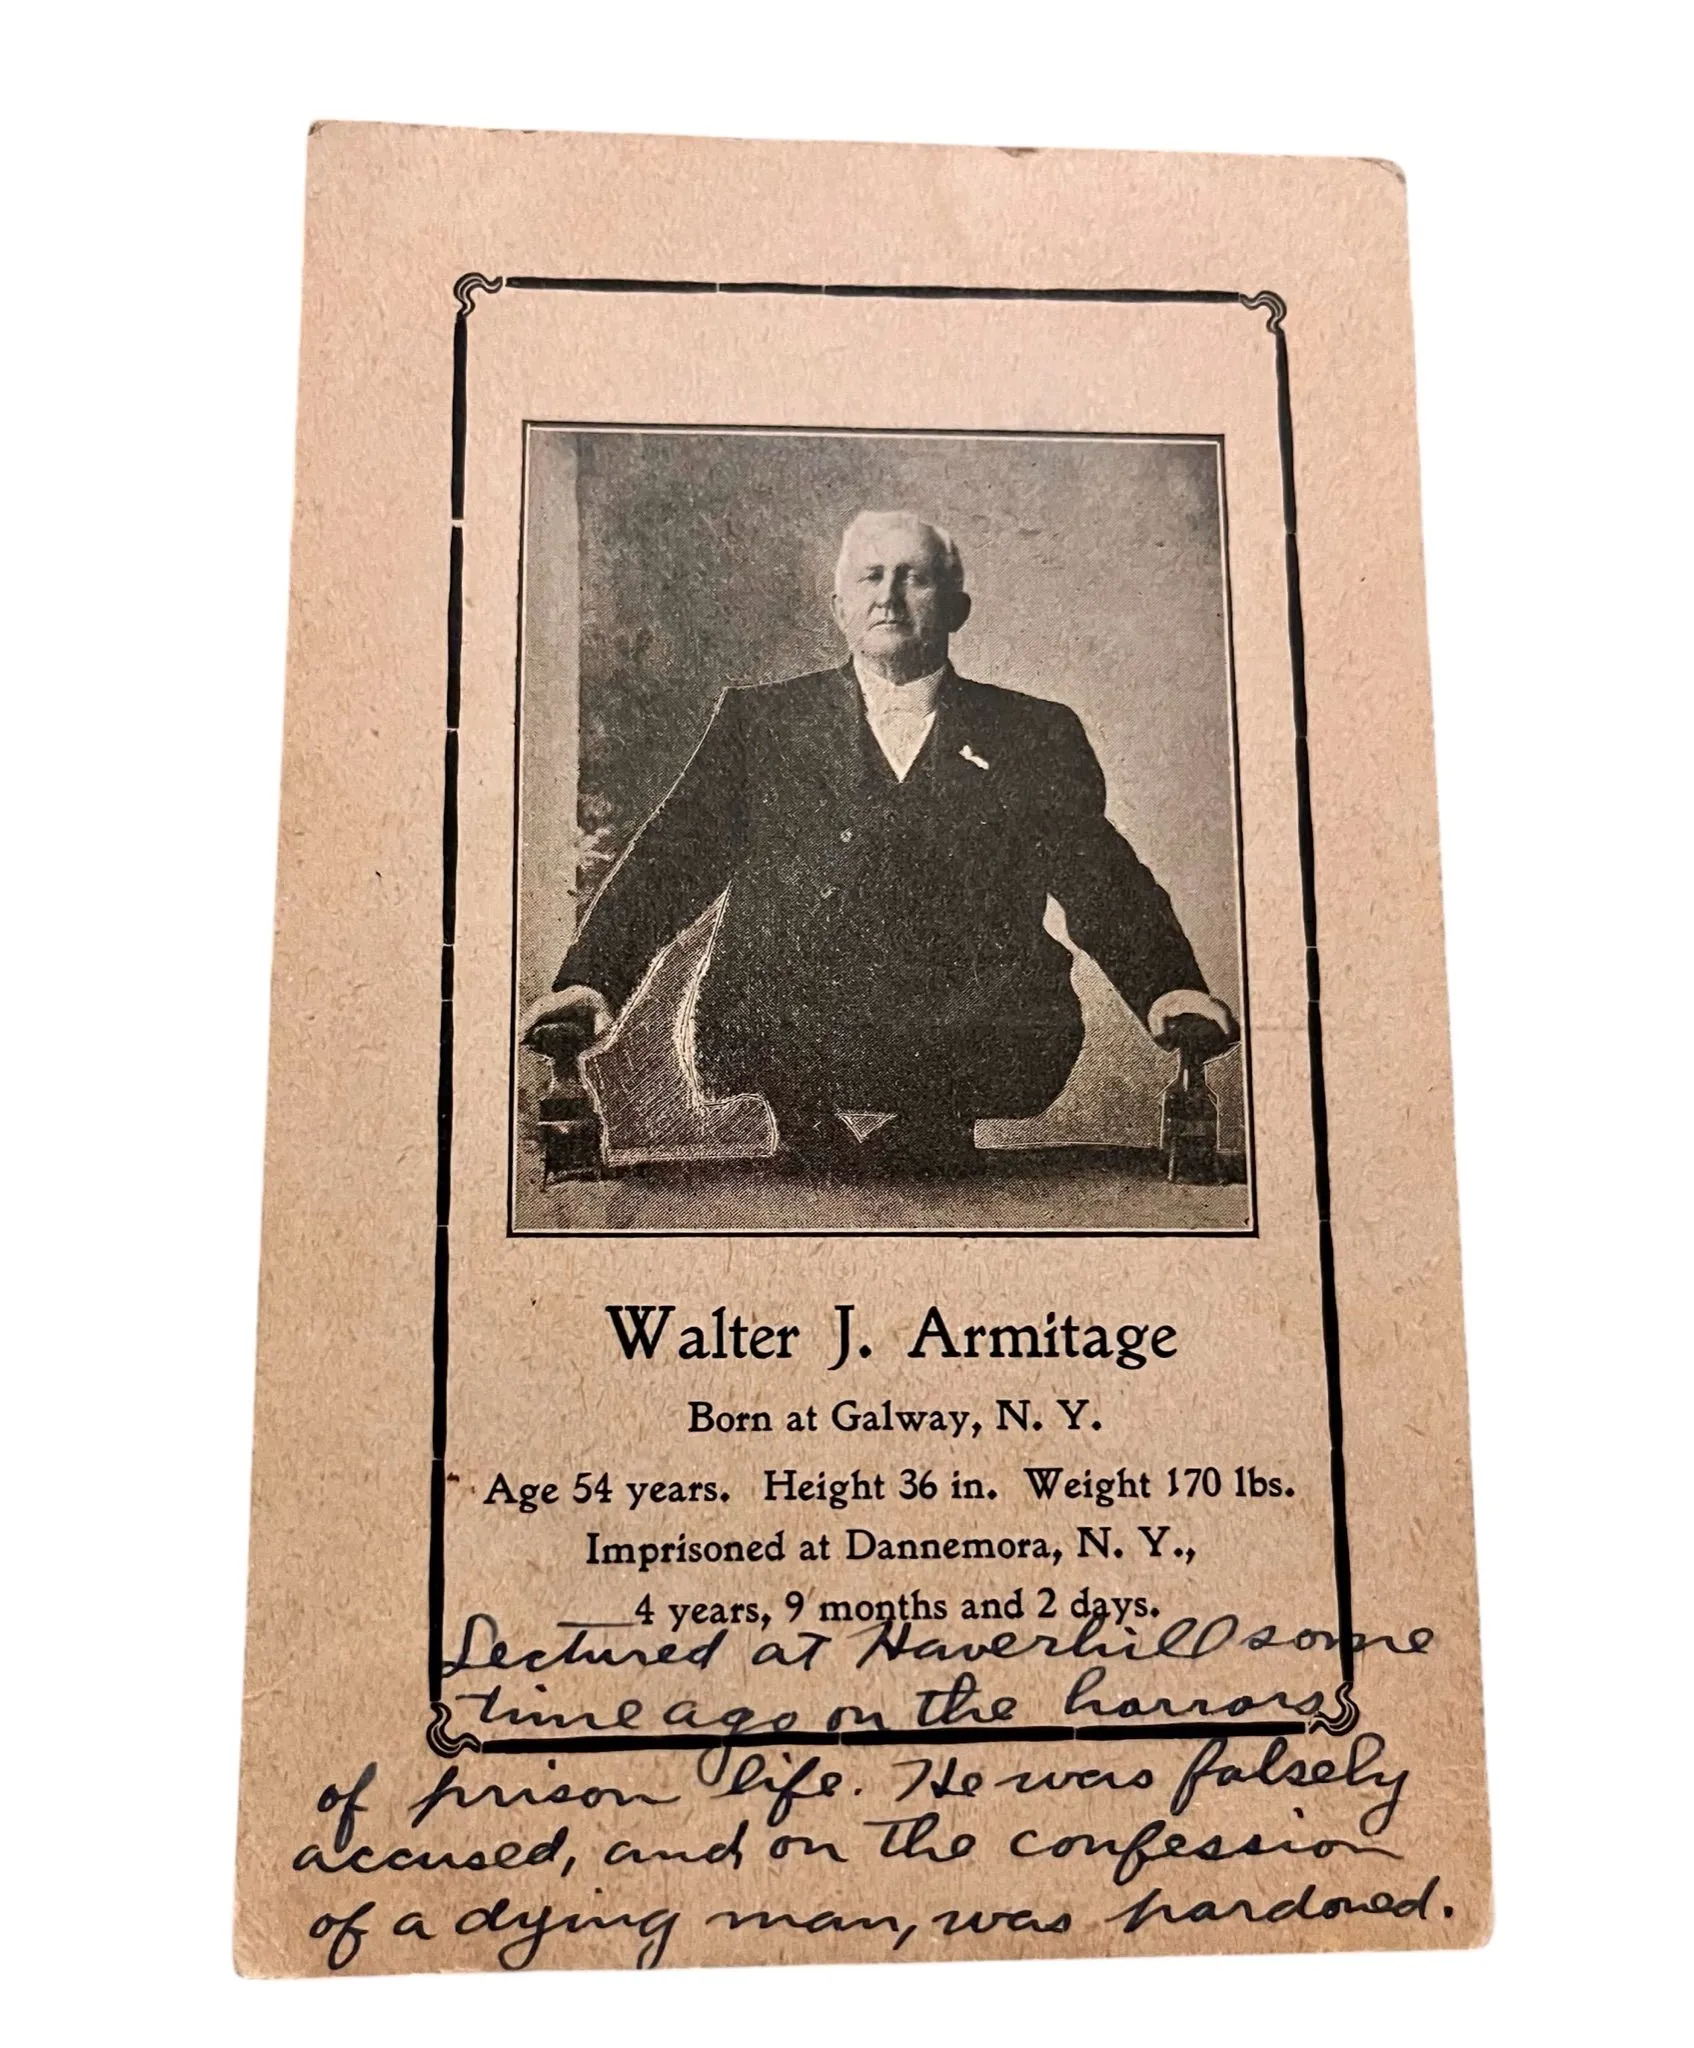 Walter J. Armitage
Born at Galway, N. Y.
Age 54 years. Height 36 in. Weight 170 lbs.
Imprisoned at Dannemora, N. Y.,
4 years, 9 months and 2 days.
Lectured at Haverhill some
time ago on the horrors
of prison life. He was falsely
accused, and on the confession
of a dying man, was pardoned.